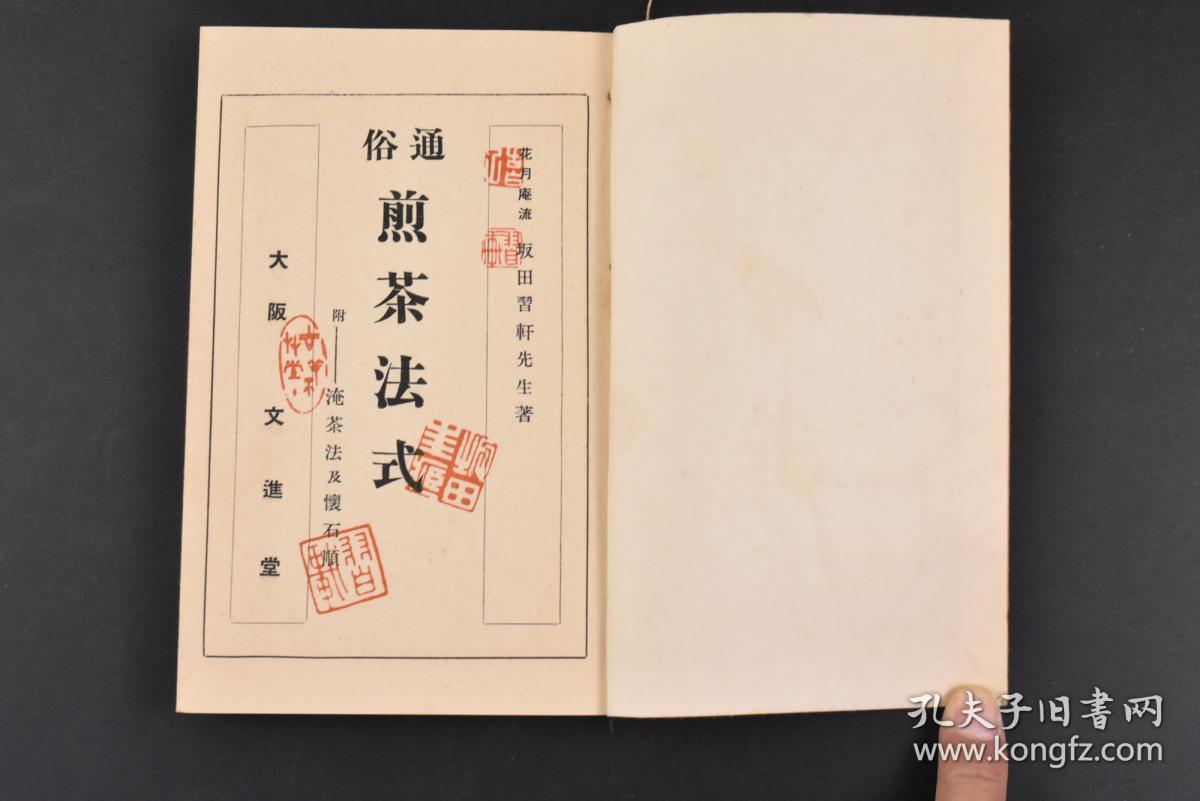 花月庵流 坂田習軒先生著
通俗
煎茶法式
附——淹茶法及懷石順
大阪文進堂
孔夫子旧書网
www.kongfz.com